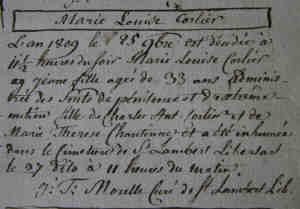 Marie Louise Corlier
L'an 1809 le 25 9bre est décédée à
11½ heures du soir Marie Louise Corlier
jeune fille agée de 33 ans adminis-
trée des Sints de pénitence et d'extrême
onction fille de Charles Ant. Corlier et de
Marie Therese Chantenne et a été inhumée
dans le Cimetiere de St Lambert Libersart
le 27 dito à 11 heures du matin
J: J: Moulle Curé de St Lambert Lib.